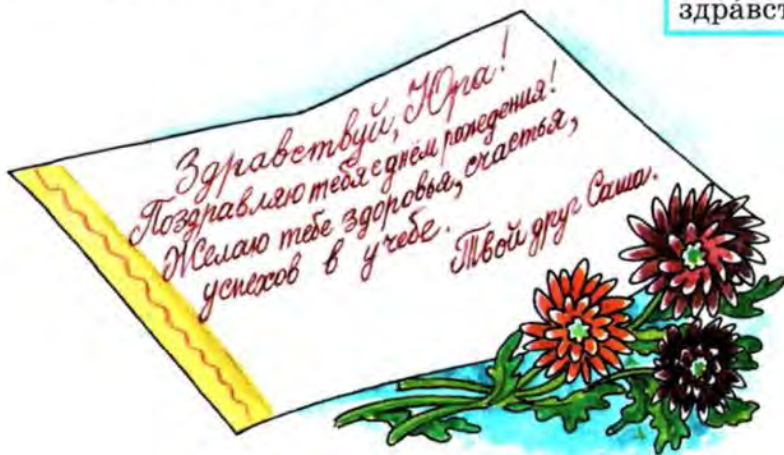 здрáвст
Здравствуй, Юра!
Поздравляю тебя с днём рождения!
Желаю тебе здоровья, счастья,
успехов в учебе.
Твой друг Саша.